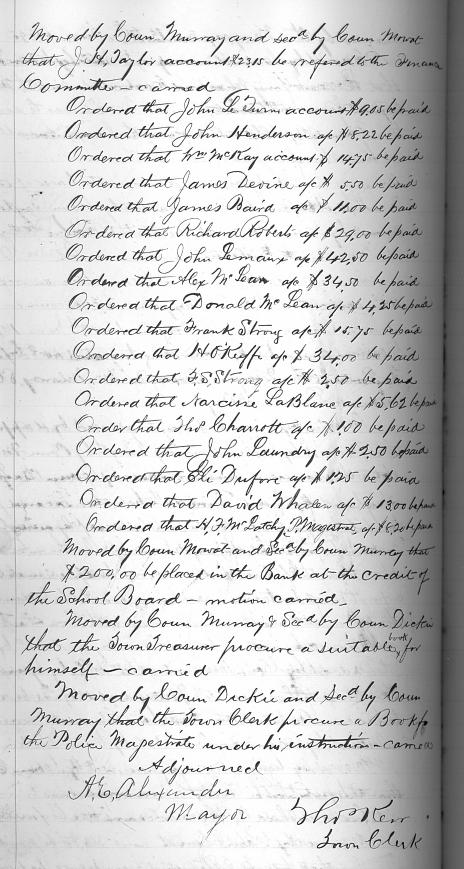 Moved by Coun Murray and secd by Coun Mowat
that J. H. Taylor account $23.15 be refered to the Finance
Committe - carried
Ordered that John Le account $9.05 be paid
Ordered that John Henderson a/c $8.22 be paid
Ordered that Wm McKay account $14.75 be paid
Ordered that James Devine a/c $5.50 be paid
Ordered that James Baird a/c $11.00 be paid
Ordered that Richard Roberts a/c $29.00 be paid
Ordered that John a/c $42.50 be paid
Ordered that Alex McLean a/c $34.50 be paid
Ordered that Donald McLean a/c $4.25 be paid
Ordered that Frank Strong a/c $15.75 be paid
Ordered that H O'Keeffe a/c $34.00 be paid
Ordered that F. S. Strong a/c $2.50 be paid
Ordered that Narcisse LaBlanc a/c $5.62 be paid
Order that Thos Charrott a/c $.100 be paid
Ordered that John Laundry a/c $2.50 be paid
Ordered that Eli Dufore a/c $1.25 be paid
Ordered that David Whalen a/c $13.00 be paid
Ordered that H. F. McLatchy P. Magistrat a/c $8.20 be paid
Moved by Coun Mowat and Secd by Coun Murray that
$200.00 be placed in the Bank at the credit of
the School Board - motion carried -
Moved by Coun Murray & Secd by Coun Dickie
that the Town Treasurer procure a suitable book for
himself - carried
Moved by Coun Dickie and Secd by Coun
Murray that the Town Clerk procure a Book for
the Police Magestrate under his instruction - carried
Adjourned
A. E. Alexander
Mayor
Thos Kerr
Town Clerk